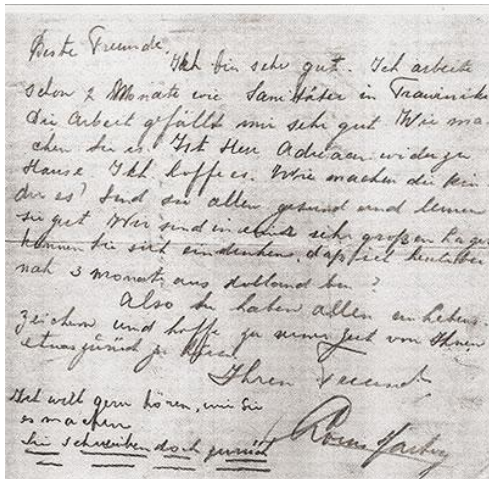 Beste Freunde.
Ich bin sehr gut. Ich arbeite
schon 2 Monate wie Sanitäter in Trawinike
Die Arbeit gefällt mir sehr gut Wie ma-
chen Sie es. Ist Herr Adriaan wider zu
Hause Ich hoffe es. Wie machen die Kin-
der es? Sind sie allen gesund und lernen
sie gut Wir sind in sehr großen Lager
können Sie sich eindenken, daß ich
nah 3 Monate aus ?
Also Sie haben allen ein Lebens-
zeichen und hoffe zu seiner Zeit von Ihnen
etwas zurück zu hören
Ihren Freund
Ich will gern hören, wie Sie
es machen
Sie schreiben doch zurück